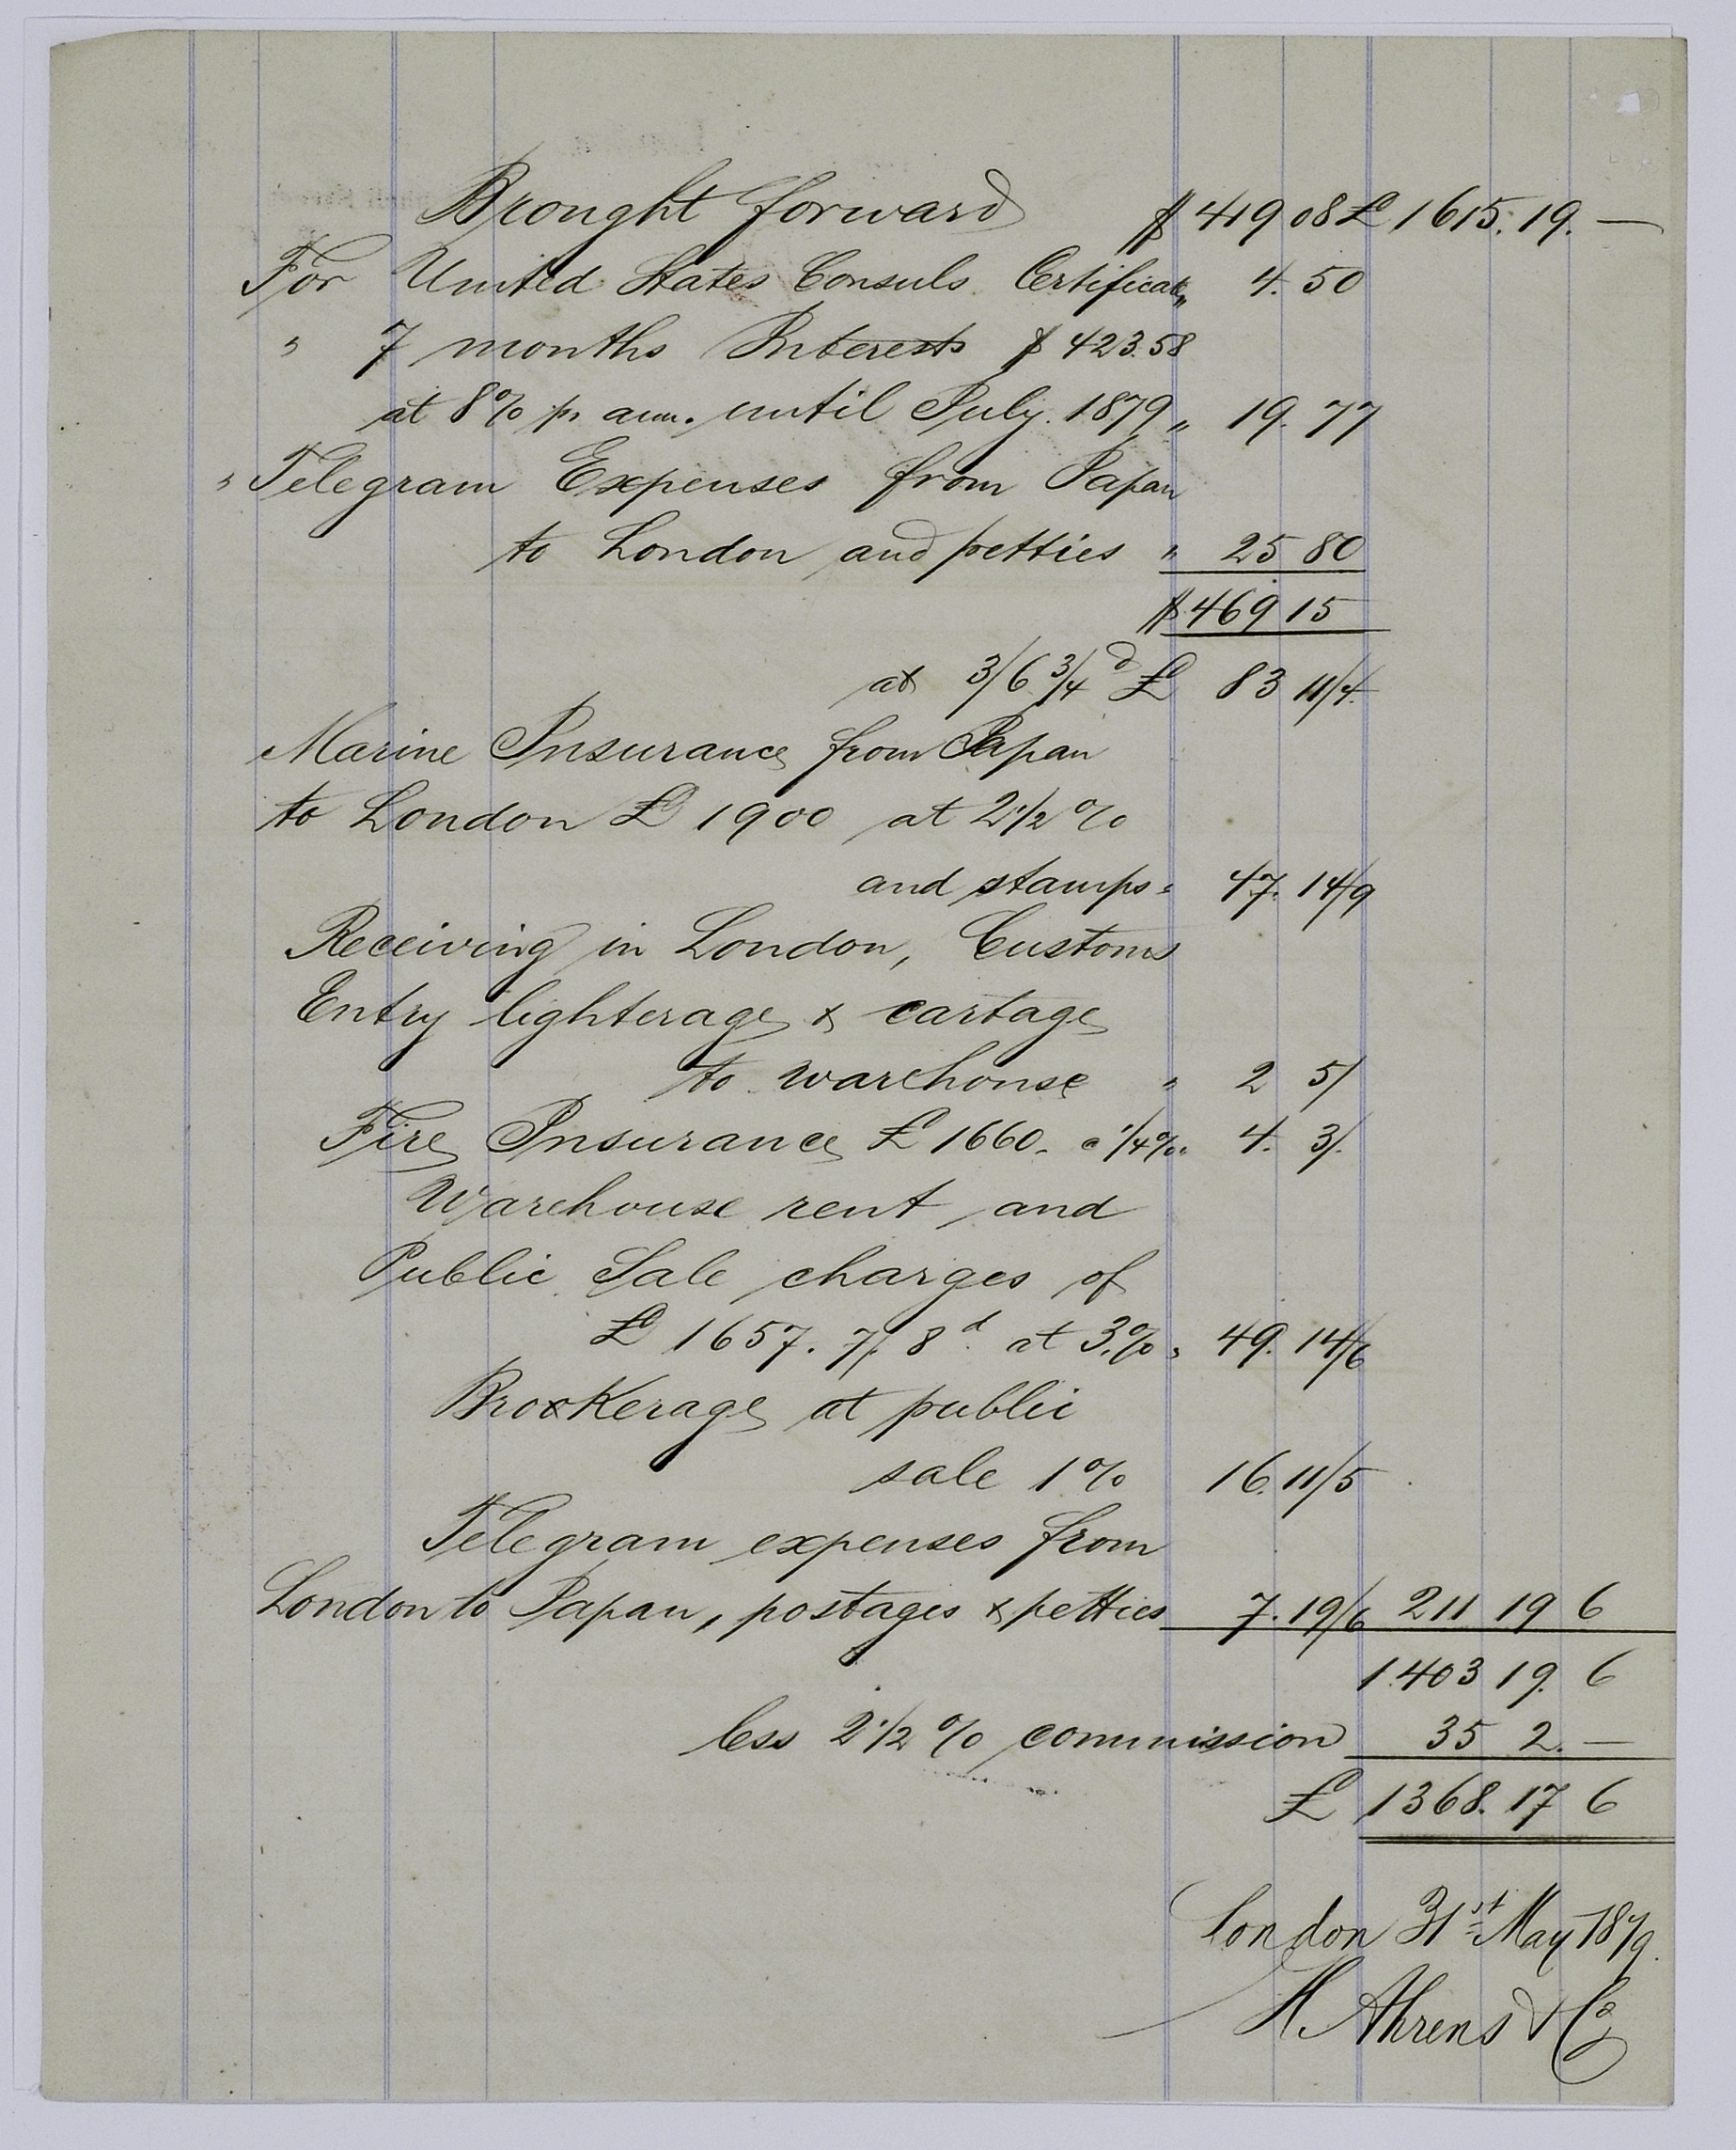 Brought forward $ 419 08 £ 1615. 19. —
For United States Consuls Certificate „ 4. 50
" 7 months Interests $ 423.58
at 8% pr ann. until July. 1879 „ 19. 77
" Telegram Expenses from Japan
to London and petties " 25 80
$ 469 15
at 3/6 3/4 d £ 83 11/4.
Marine Insurance from Japan
to London £ 1900 at 2 1/2 %
and stamps " 47. 14/9
Receiving in London, Customs
Entry lighterage & cartage
to warehouse " 2 5/
Fire Insurance £ 1660. a 1/4 % " 4. 3/.
Warehouse rent and
Public Sale charges of
£ 1657. 7/. 8d. at 3.% " 49. 14/6
Brokerage at public
sale 1% 16. 11/5
Telegram expenses from
London to Japan, postages & petties 7. 19/6 211 19 6
1.403 19. 6
less 2 1/2 % commission 35 2. —
£ 1368. 17 6
London 31st May 1879.
H. Ahrens & Co